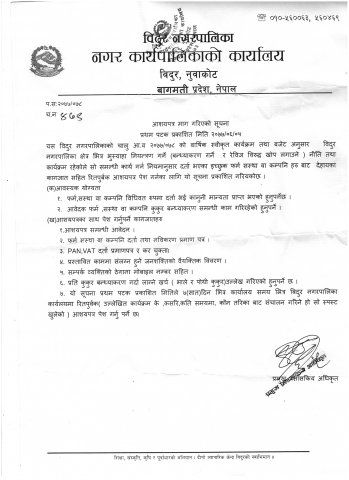 ☎ ०१०-५६००६३, ५६०४६९
विदुर नगरपालिका
नगर कार्यपालिकाको कार्यालय
विदुर, नुवाकोट
बागमती प्रदेश, नेपाल
प.स:२०७७/०७८
च.न ४७९
आशयपत्र माग गरिएको सूचना
प्रथम पटक प्रकाशित मिति २०७७/०६/०५
यस विदुर नगरपालिकाको चालु आ.व २०७७/०७८ को वार्षिक स्वीकृत कार्यक्रम तथा बजेट अनुसार विदुर
नगरपालिका क्षेत्र भित्र भुस्याहा नियन्त्रण गर्ने (बन्ध्याकरण गर्ने र रेविज विरुद्ध खोप लगाउने ) नीति तथा
कार्यक्रम रहेकोले सो सम्बन्धी कार्य गर्न नियमानुसार दर्ता भएका इच्छुक फर्म संस्था वा कम्पनि हरु बाट देहायका
कागजात सहित रितपुर्बक आशयपत्र पेश गर्नका लागि यो सूचना प्रकाशित गरिएकोछ ।
(क)आवश्यक योग्यता
१. फर्म,संस्था वा कम्पनि विधिवत रुपमा दर्ता भई कानुनी मान्यता प्राप्त भएको हुनुपर्नेछ ।
२. आवेदक फर्म, संस्था वा कम्पनि कुकुर बन्ध्याकरण सम्बन्धी काम गरिरहेको हुनुपर्ने ।
(ख)आशयपत्रका साथ पेश गर्नुपर्ने कागजातहरु
१.आशयपत्र सम्बन्धी आवेदन ।
२. फर्म,संस्था वा कम्पनि दर्ता तथा नविकरण प्रमाण पत्र ।
३. PAN,VAT दर्ता प्रमाणपत्र र कर चुक्ता।
४. प्रस्तावित काममा संलग्न हुने जनशक्तिको वैयक्तिक विवरण ।
५. सम्पर्क व्यक्तिको ठेगाना मोबाइल नम्बर सहित ।
६. प्रति कुकुर बन्ध्याकरण गर्दा लाग्ने खर्च ( भाले र पोथी कुकुर)उल्लेख गरिएको हुनुपर्ने छ ।
७. यो सूचना प्रथम पटक प्रकाशित मितिले ७(सात)दिन भित्र कार्यालय समय भित्र विदुर नगरपालिका
कार्यालयमा रितपुर्बक( उल्लेखित कार्यक्रम के ,कसरि,कति समयमा, कौन तरिका बाट संचालन गरिने हो सो स्पस्ट
खुलेको ) आशयपत्र पेश गर्नु पर्ने छ।
प्रमुख प्रशासकिय अधिकृत